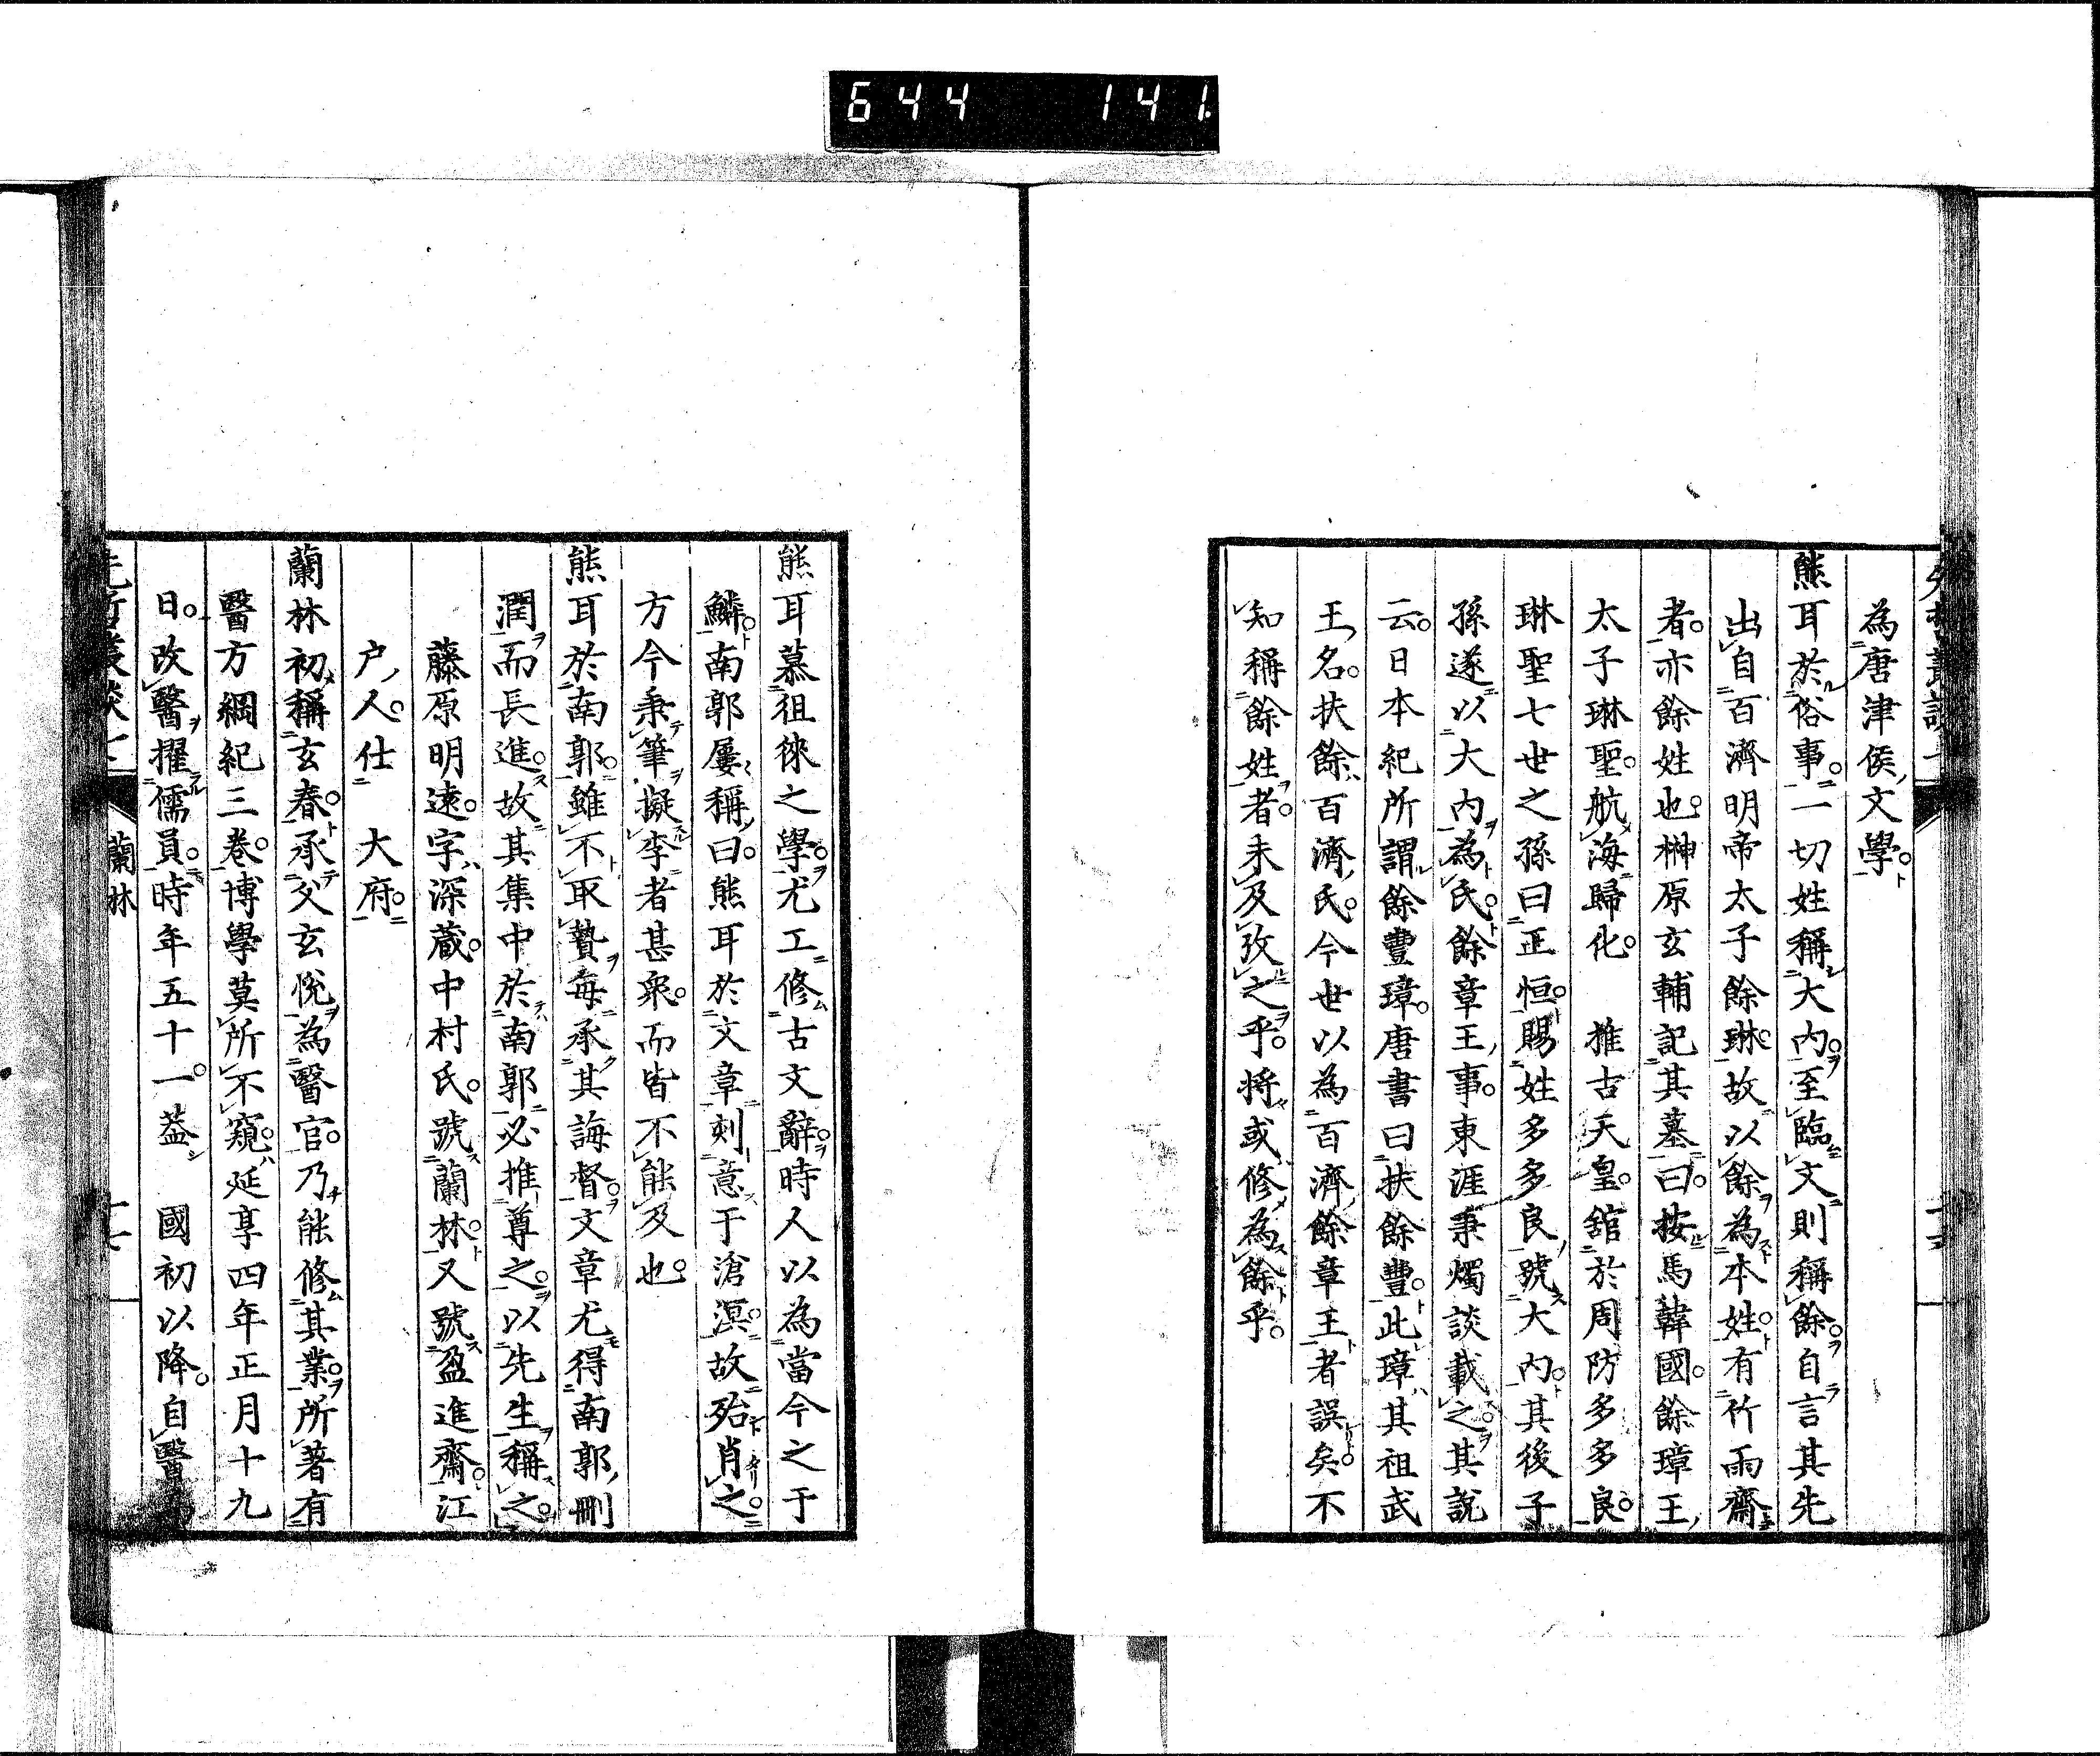 644 141
為唐津侯文學。
熊耳於俗事。一切姓稱大内。至臨文則稱餘。自言其先
出自百濟明帝太子餘琳。故以餘為本姓。有竹雨齋
者。亦餘姓也。榊原玄輔記其墓曰。按馬韓國。餘璋王
太子琳聖。航海歸化。 推古天皇。舘於周防多多良。
琳聖七世之孫曰正恒。賜姓多多良。號大内。其後子
孫遂以大内為氏。餘章王事。東涯秉燭談載之。其說
云。日本紀所謂餘豐璋。唐書曰扶餘豐。此璋其祖武
王名。扶餘百濟氏。今世以為百濟餘章王者誤矣。不
知稱餘姓者。未及攷之乎。將或修為餘乎。
熊耳慕徂徠之學。尤工修古文辭。時人以為當今之于
鱗。南郭屢稱曰。熊耳於文章。刻意于滄溟。故殆肖之。
方今秉筆擬李者甚衆。而皆不能及也。
熊耳於南郭。雖不取贄。每承其誨督。文章尤得南郭刪
潤而長進。故其集中於南郭必推尊之。以先生稱之。
藤原明遠。字深藏。中村氏。號蘭林。又號盈進齋。江
戶人。仕 大府。
蘭林初稱玄春。承父玄悅為醫官。乃能修其業。所著有
醫方綱紀三卷。博學莫所不窺。延享四年正月十九
日。改醫擢儒員。時年五十一。蓋 國初以降。自醫
蘭林